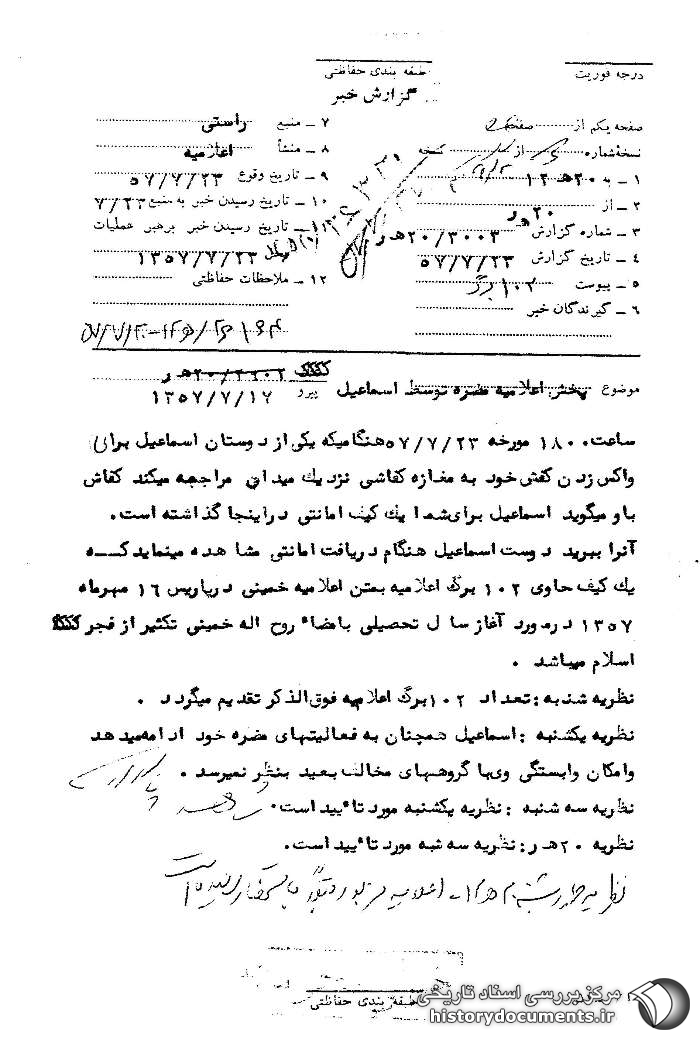 درجه فوریت
طبقه بندی حفاظتی
گزارش خبر
صفحه یکم از صفحه
نسخه شماره از نسخه
۱ ـ به ۲۰هـ ۱۲
۲ ـ از ۲۰هـ ر
۳ ـ شماره گزارش ۲۰/۳۰۰۳هـ ر
۴ ـ تاریخ گزارش ۵۷/۷/۲۳
۵ ـ پیوست ۱۰۲ برگ
۶ ـ گیرندگان خبر
۷ ـ منبع راستی
۸ ـ منشأ اعلامیه
۹ ـ تاریخ وقوع ۵۷/۷/۲۳
۱۰ ـ تاریخ رسیدن خبر به منبع ۷/۲۳
۱۱ ـ تاریخ رسیدن خبر برهبر عملیات ۱۳۵۷/۷/۲۳
۱۲ ـ ملاحظات حفاظتی
موضوع پخش اعلامیه مضره توسط اسماعیل
پیرو ۱۳۵۷/۷/۱۷
ساعت ۱۸۰ مورخه ۵۷/۷/۲۳ هنگامیکه یکی از دوستان اسماعیل برای
واکس زدن کفش خود به مغازه کفاشی نزدیك میدان مراجعه میکند کفاش
باو میگوید اسماعیل برای شما یك کیف امانتی در اینجا گذاشته است.
آنرا ببرید دوست اسماعیل هنگام دریافت امانتی مشاهده مینماید کـــه
یك کیف حاوی ۱۰۲ برگ اعلامیه بمتن اعلامیه خمینی در پاریس ۱۶ مهرماه
۱۳۵۷ در مورد آغاز سال تحصیلی بامضاء روح اله خمینی تکثیر از فجر
اسلام میباشد .
نظریه شنبه : تعداد ۱۰۲ برگ اعلامیه فوق الذکر تقدیم میگردد .
نظریه یکشنبه : اسماعیل همچنان به فعالیتهای مضره خود ادامه میدهد
وامکان وابستگی وی با گروههای مخالف بعید بنظر نمیرسد .
نظریه سه شنبه : نظریه یکشنبه مورد تائید است.
نظریه ۲۰هـ ر : نظریه سه شبه مورد تائید است.
طبقه بندی حفاظتی
مرکز بررسی اسناد تاریخی
historydocuments.ir